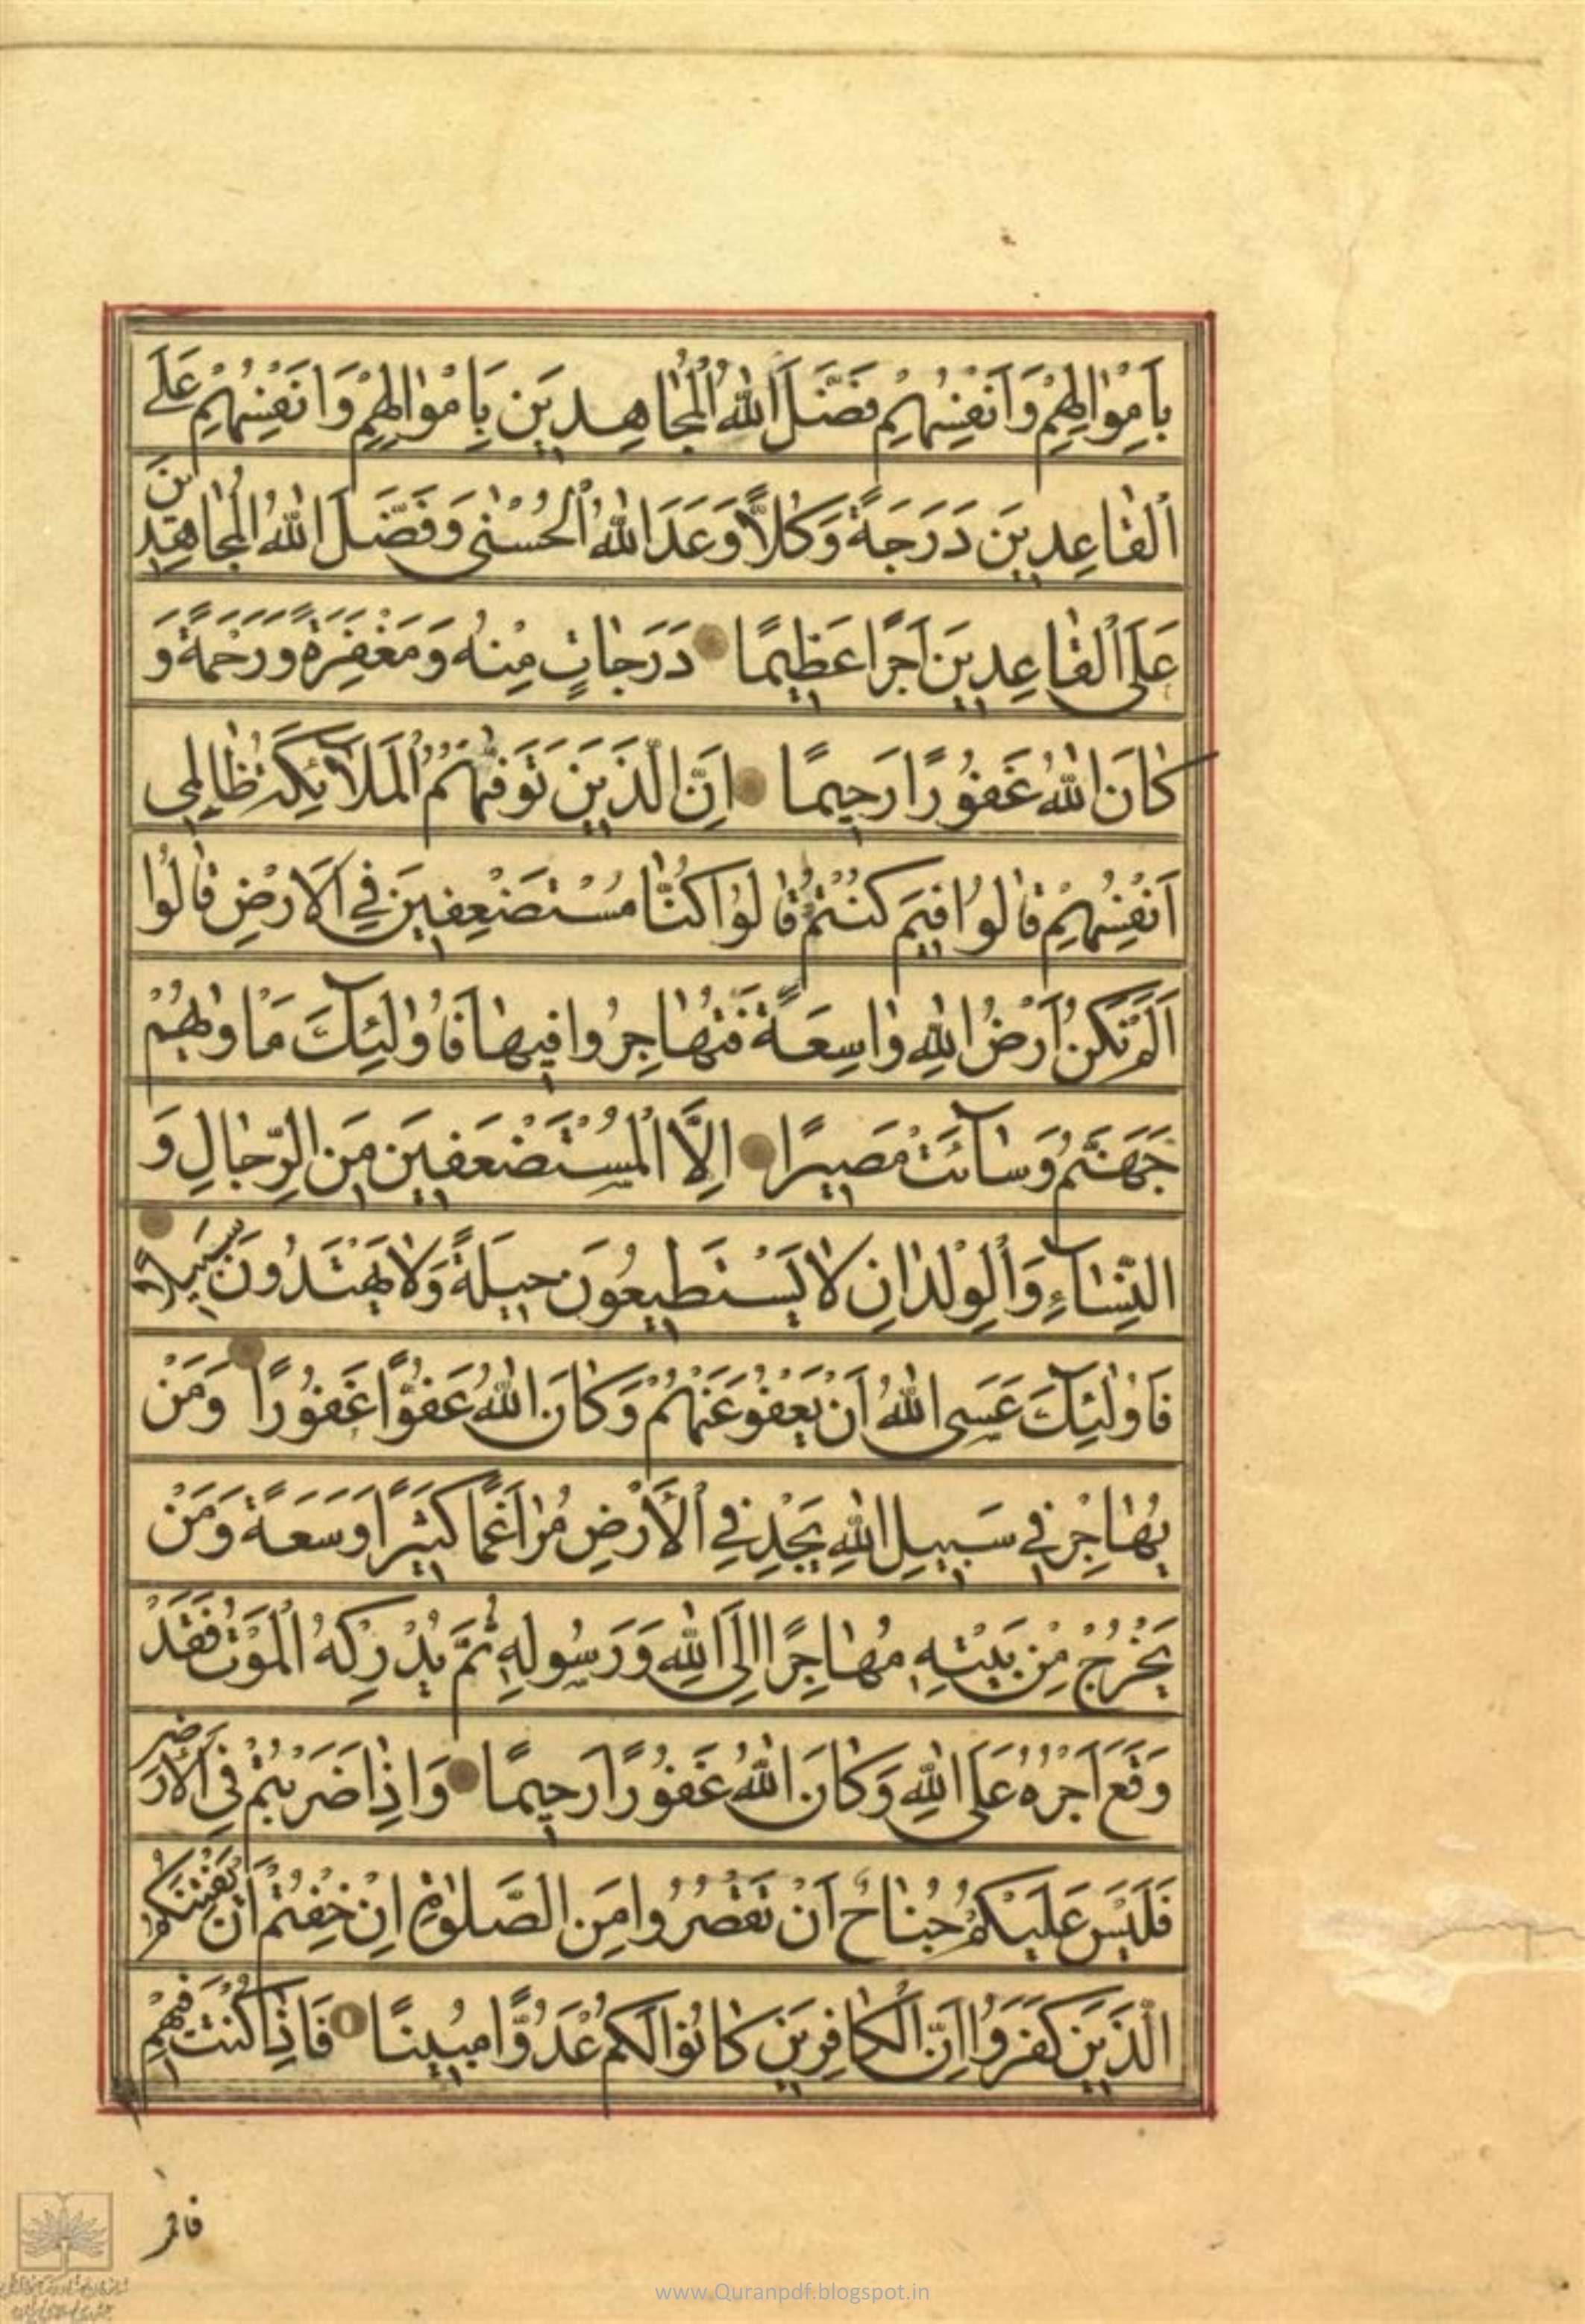 بِاَمْوٰالِهِمْ وَاَنْفُسِهِمْ فَضَّلَ اللّٰهُ الْمُجٰاهِدِينَ بِاَمْوٰالِهِمْ وَاَنْفُسِهِمْ عَلَى
الْقٰاعِدِينَ دَرَجَةً وَكُلًّا وَعَدَ اللّٰهُ الْحُسْنٰى وَفَضَّلَ اللّٰهُ الْمُجٰاهِدِينَ
عَلَى الْقٰاعِدِينَ اَجْرًا عَظِيمًا دَرَجٰاتٍ مِنْهُ وَمَغْفِرَةً وَرَحْمَةً وَ
كٰانَ اللّٰهُ غَفُورًا رَحِيمًا اِنَّ الَّذِينَ تَوَفّٰيهُمُ الْمَلَآئِكَةُ ظٰالِمِى
اَنْفُسِهِمْ قٰالُوا فِيمَ كُنْتُمْ قٰالُوا كُنّٰا مُسْتَضْعَفِينَ فِي الْاَرْضِ قٰالُوا
اَلَمْ تَكُنْ اَرْضُ اللّٰهِ وٰاسِعَةً فَتُهٰاجِرُوا فِيهٰا فَاُولٰئِكَ مَاْوٰيهُمْ
جَهَنَّمُ وَسٰآءَتْ مَصِيرًا اِلَّا الْمُسْتَضْعَفِينَ مِنَ الرِّجٰالِ وَ
النِّسٰآءِ وَالْوِلْدٰانِ لٰا يَسْتَطِيعُونَ حِيلَةً وَلٰا يَهْتَدُونَ سَبِيلًا
فَاُولٰئِكَ عَسَى اللّٰهُ اَنْ يَعْفُوَ عَنْهُمْ وَكٰانَ اللّٰهُ عَفُوًّا غَفُورًا وَمَنْ
يُهٰاجِرْ فِي سَبِيلِ اللّٰهِ يَجِدْ فِي الْاَرْضِ مُرٰاغَمًا كَثِيرًا وَسَعَةً وَمَنْ
يَخْرُجْ مِنْ بَيْتِهِ مُهٰاجِرًا اِلَى اللّٰهِ وَرَسُولِهِ ثُمَّ يُدْرِكْهُ الْمَوْتُ فَقَدْ
وَقَعَ اَجْرُهُ عَلَى اللّٰهِ وَكٰانَ اللّٰهُ غَفُورًا رَحِيمًا وَاِذٰا ضَرَبْتُمْ فِي الْاَرْضِ
فَلَيْسَ عَلَيْكُمْ جُنٰاحٌ اَنْ تَقْصُرُوا مِنَ الصَّلٰوةِ اِنْ خِفْتُمْ اَنْ يَفْتِنَكُمُ
الَّذِينَ كَفَرُوا اِنَّ الْكٰافِرِينَ كٰانُوا لَكُمْ عَدُوًّا مُبِينًا فَاِذٰا كُنْتَ فِيهِمْ
فاقم
www.Quranpdf.blogspot.in